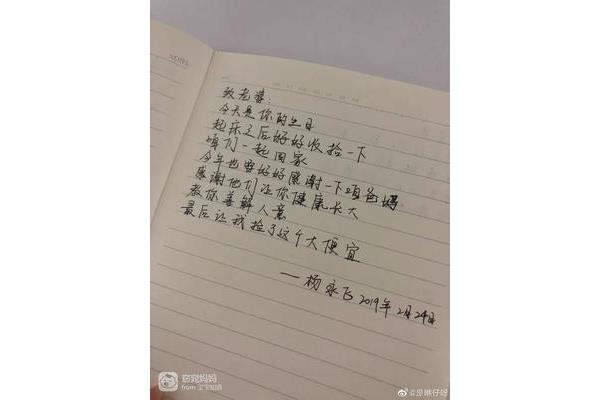 NOTE
致老婆：
今天是你的生日
起床之后好好收拾一下
咱们一起回家
今年也要好好感谢一下咱爸妈
感谢他们让你健康长大
教你善解人意
最后让我捡了这个大便宜
——杨永飞 2019年2月24日
宠宠妈妈
from 宝宝知道
@是琳仔呀